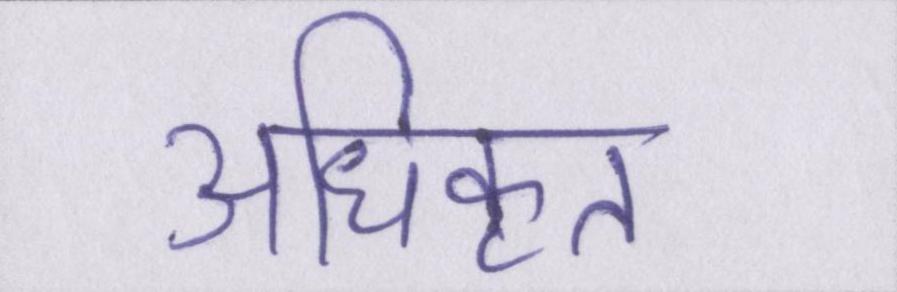 अधिकृत